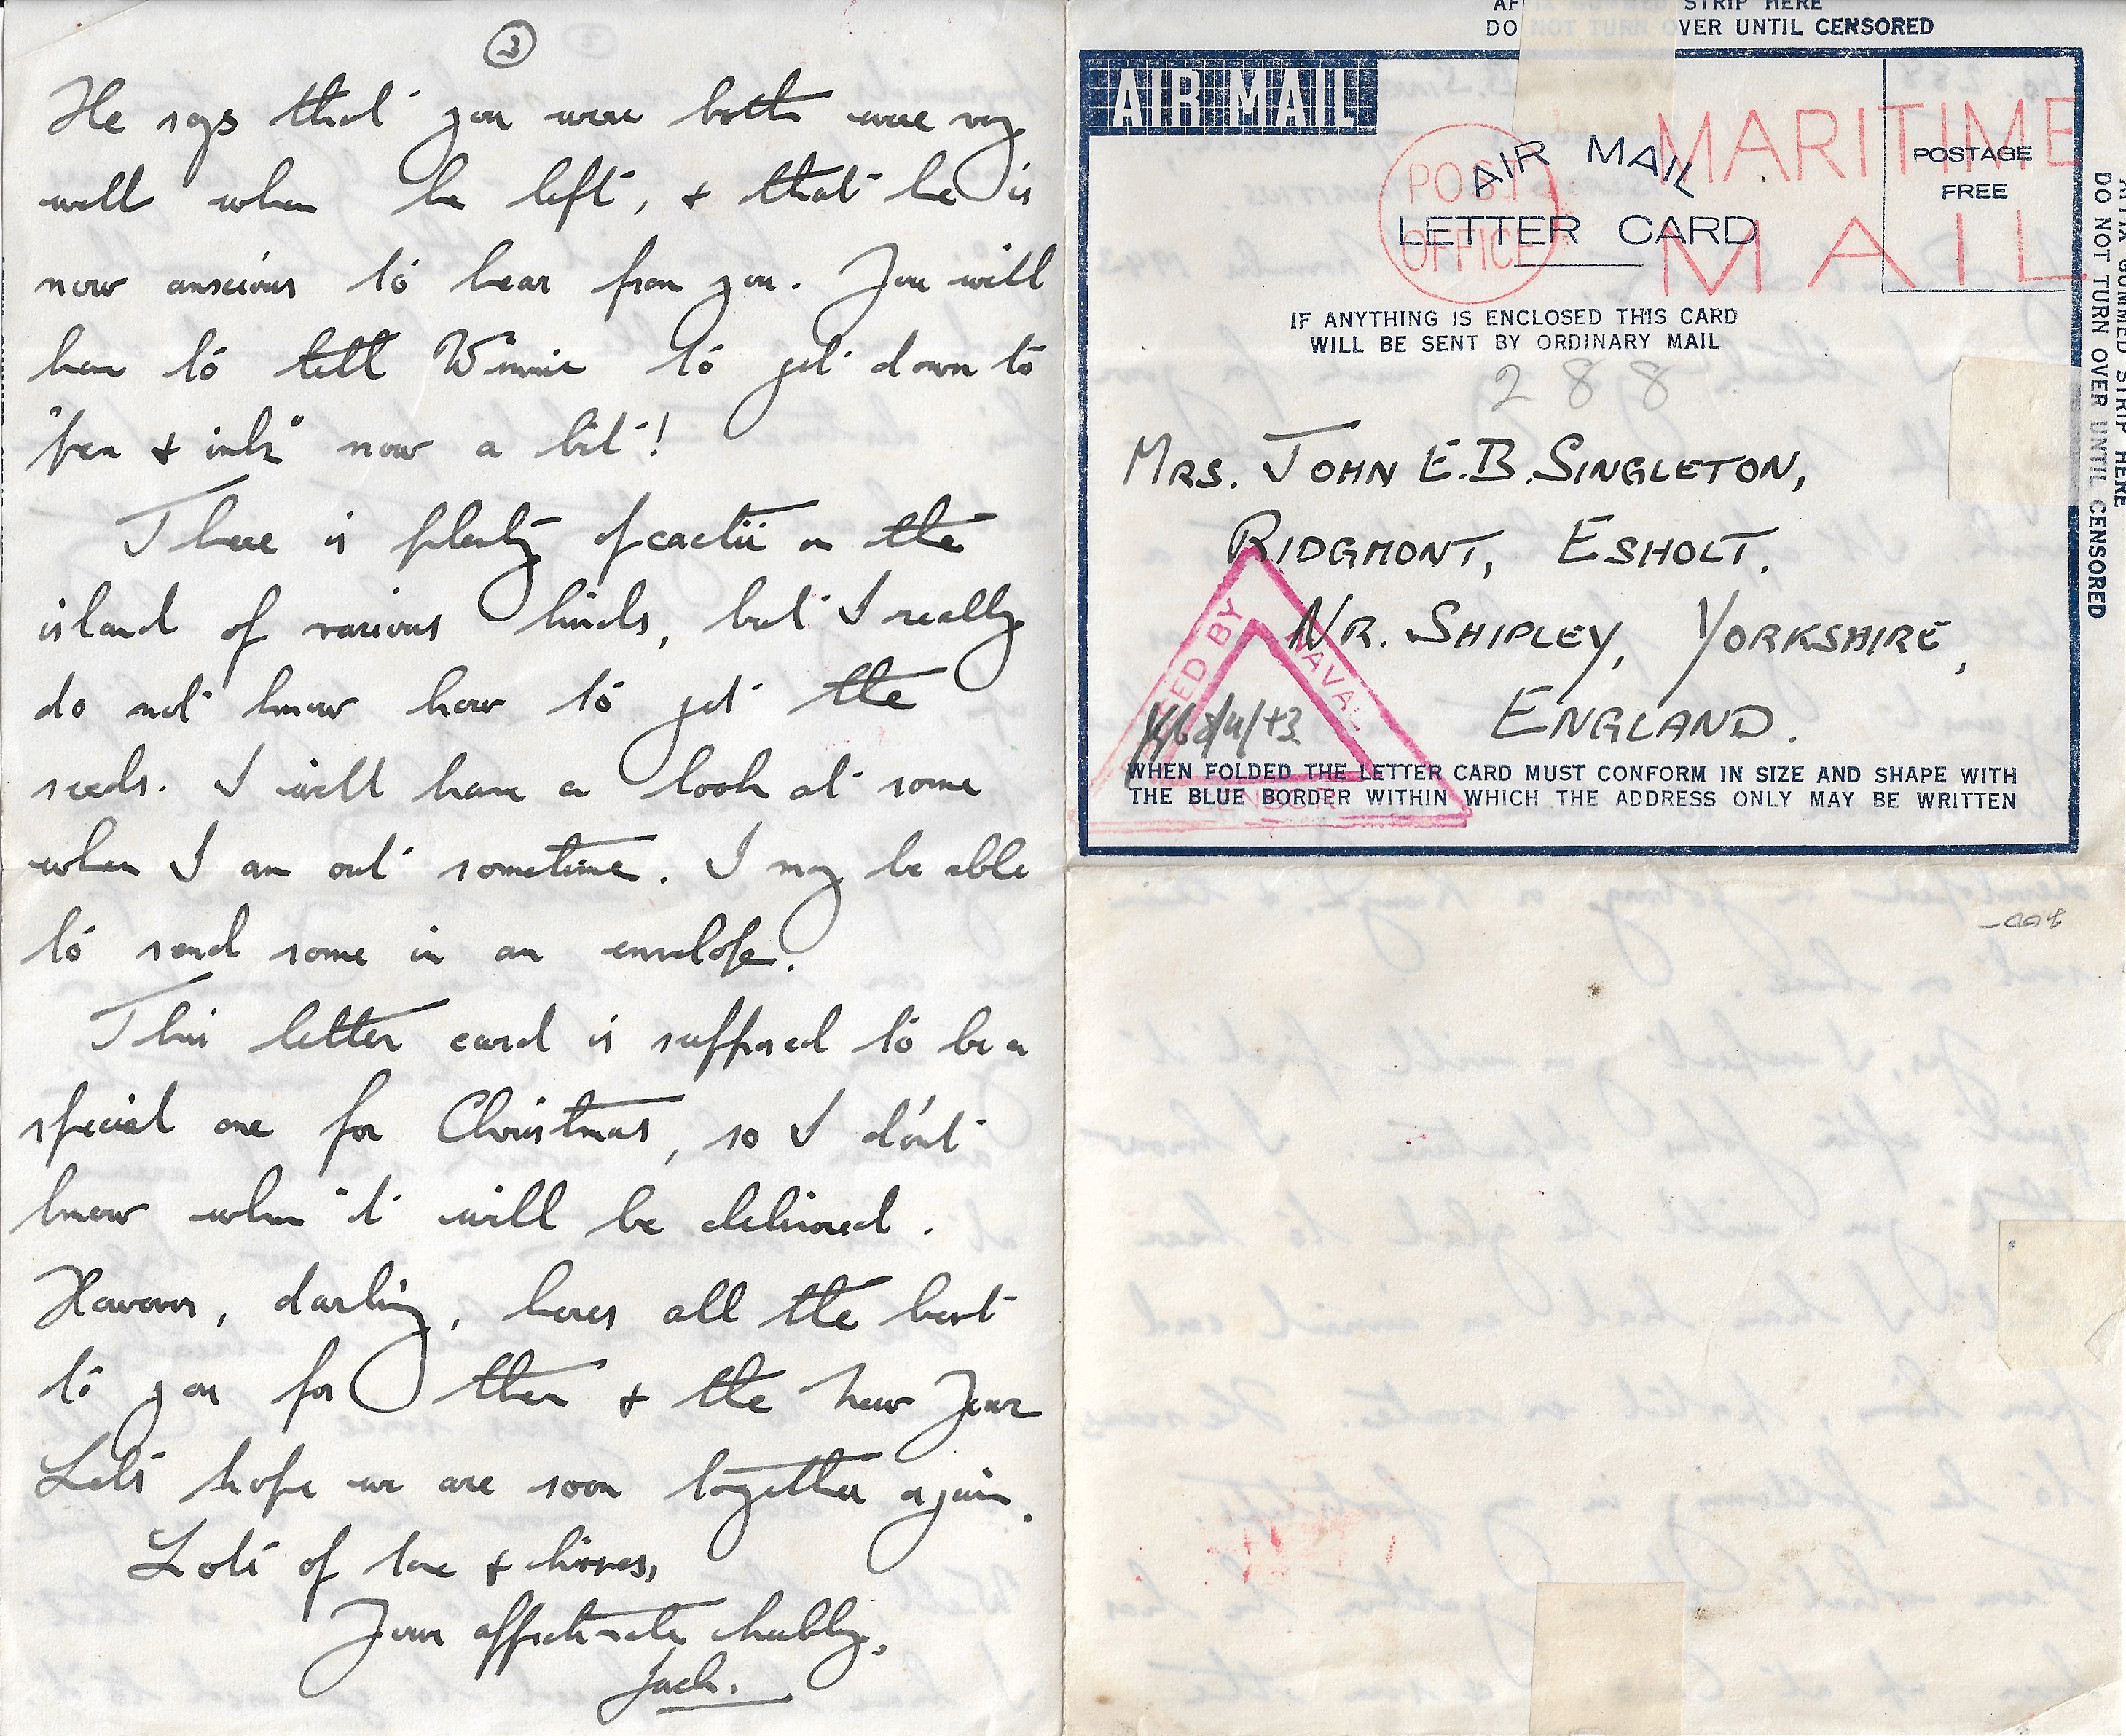 3
He says that you were both were very
well when he left, & that he is
now anxious to hear from you. You will
have to tell Winnie to get down to
"pen & ink" now a bit!
There is plenty of cactii on the
island of various kinds, but I really
do not know how to get the
seeds. I will have a look at some
when I am out sometime. I may be able
to send some in an envelope.
This letter card is supposed to be a
special one for Christmas, so I don't
know when it will be delivered.
However, darling, heres all the best
to you for then & the New Year
Lets hope we are soon together again.
Lots of love & kisses,
Your affectionate hubby,
Jack.
STRIP HERE
DO NOT TURN OVER UNTIL CENSORED
AIR MAIL
AIR MAIL
LETTER CARD
POST
OFFICE
MARITIME
MAIL
POSTAGE
FREE
IF ANYTHING IS ENCLOSED THIS CARD
WILL BE SENT BY ORDINARY MAIL
288
MRS. JOHN E.B. SINGLETON,
RIDGMONT, ESHOLT.
NR. SHIPLEY, YORKSHIRE,
ENGLAND.
WHEN FOLDED THE LETTER CARD MUST CONFORM IN SIZE AND SHAPE WITH
THE BLUE BORDER WITHIN WHICH THE ADDRESS ONLY MAY BE WRITTEN
GUMMED STRIP HERE
DO NOT TURN OVER UNTIL CENSORED